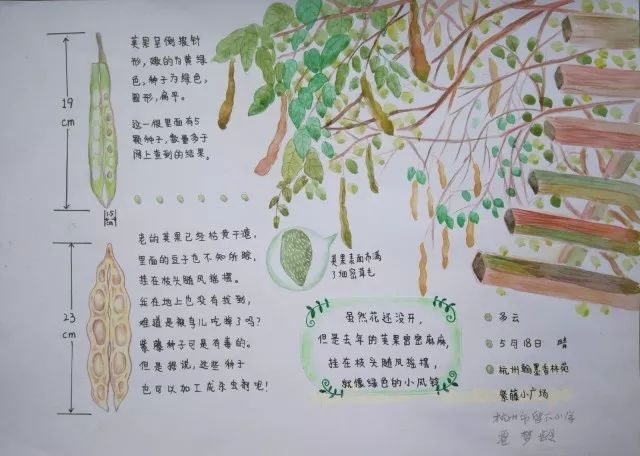 19
cm
荚果呈倒披针
形，嫩的为黄绿
色，种子为绿色，
圆形，扁平。
这一根里面有5
颗种子，数量多于
网上查到的结果。
1.5
cm
23
cm
老的荚果已经枯黄干瘪，
里面的豆子也不知所踪，
挂在枝头随风摇摆。
我在地上也没有找到，
难道是被鸟儿吃掉了吗？
紫藤种子可是有毒的。
但是据说，这些种子
也可以加工成杀虫剂呢！
荚果表面布满
了细密茸毛
虽然花还没开，
但是去年的荚果密密麻麻，
挂在枝头随风摇摆，
就像绿色的小风铃
多云
5月18日 晴
杭州翰墨香林苑
紫藤小广场
杭州市 小学
梦